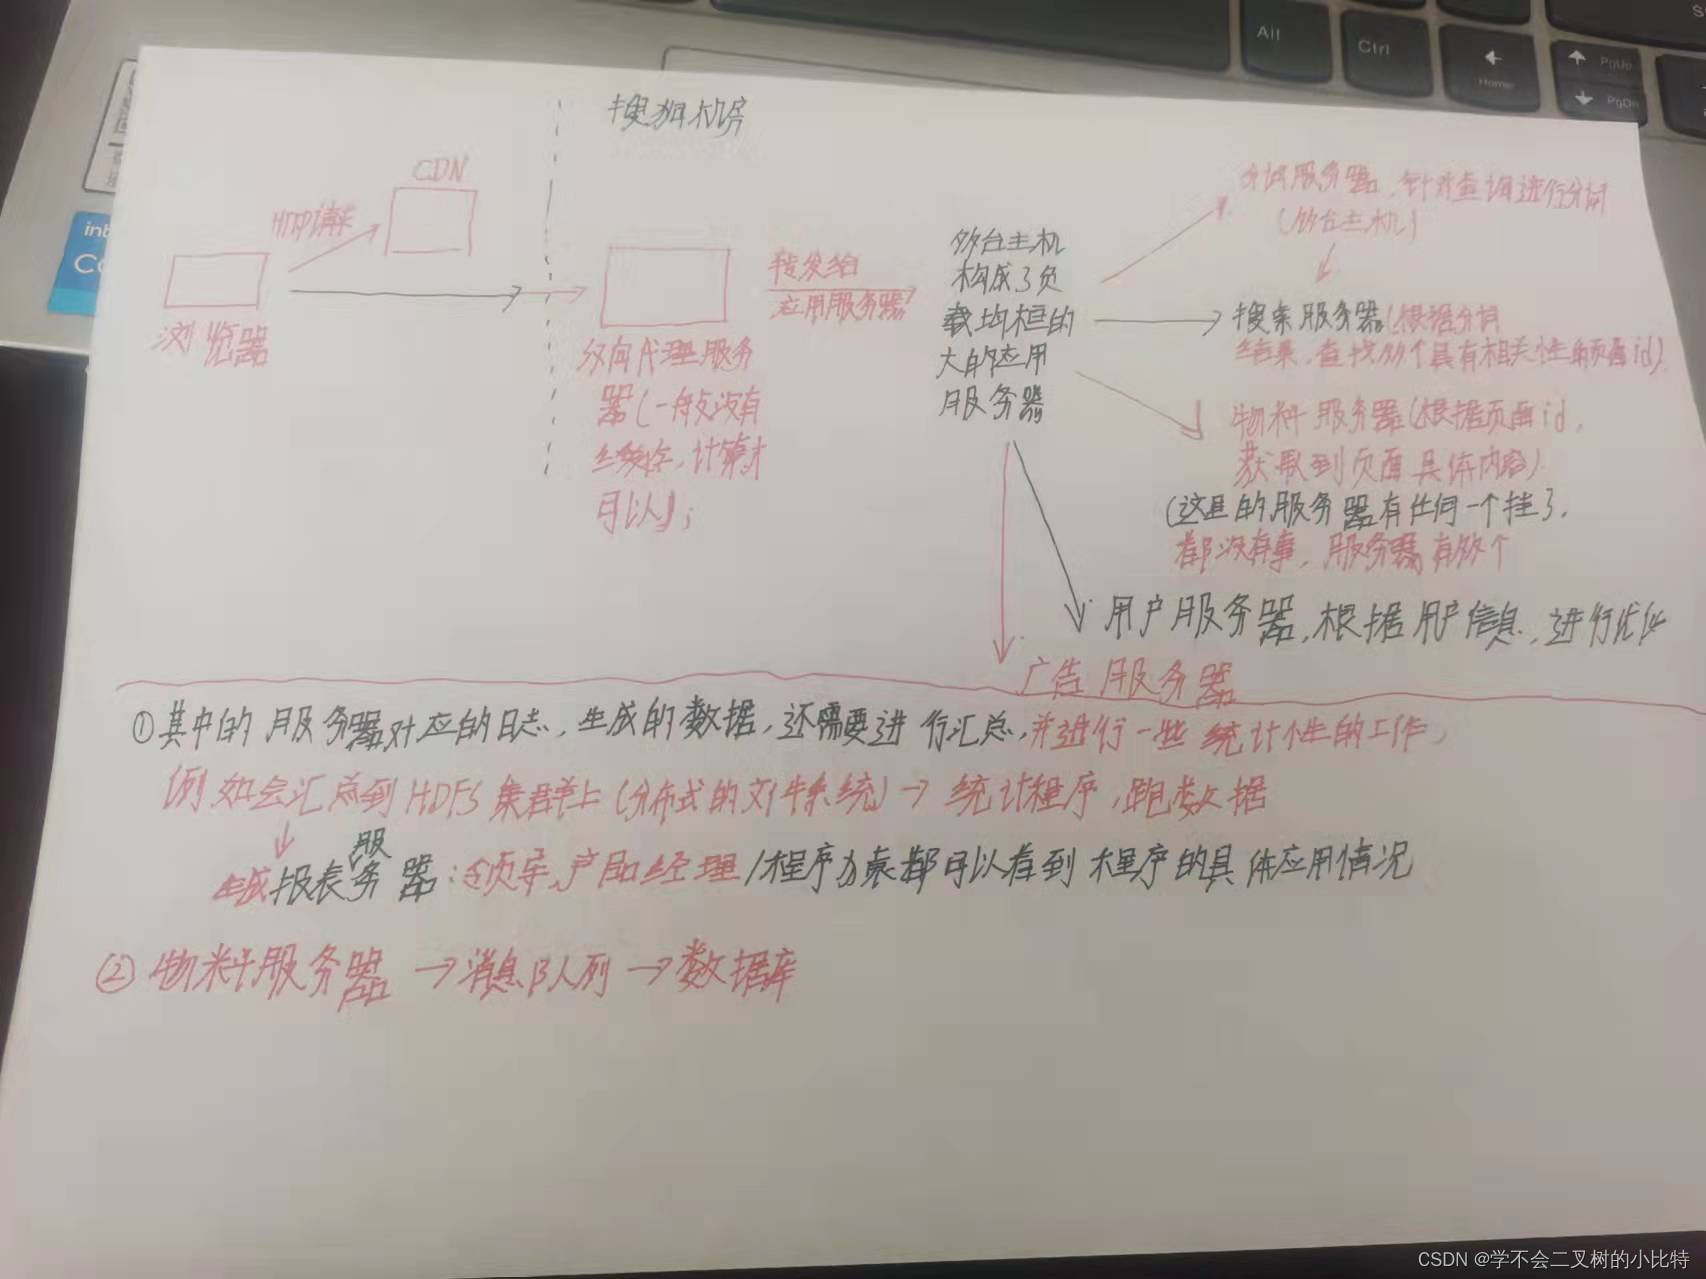 Alt
Ctrl
Home
PgUp
PgDn
搜狗机房
CDN
HTTP请求
浏览器
反向代理服务
器(一般没有
业务, 计算才
可以);
转发给
应用服务器
多台主机
构成了负
载均桓的
大的应用
服务器
分词服务器, 针对查询进行分词
(多台主机)
搜索服务器(根据分词
结果, 查找多个具有相关性的页面id).
物料服务器(根据页面id,
获取到页面具体内容).
(这里的服务器有任何一个挂了,
都没有事, 服务器有多个
用户服务器, 根据用户信息, 进行优化
广告服务器
①其中的服务器对应的日志, 生成的数据, 还需要进行汇总, 并进行一些统计性的工作,
例如会汇总到HDFS集群上(分布式的文件系统)→统计程序, 跑数据
生成报表服务器: 领导、产品经理/程序猿都可以看到程序的具体应用情况
②物料服务器→消息队列→数据库
CSDN @学不会二叉树的小比特